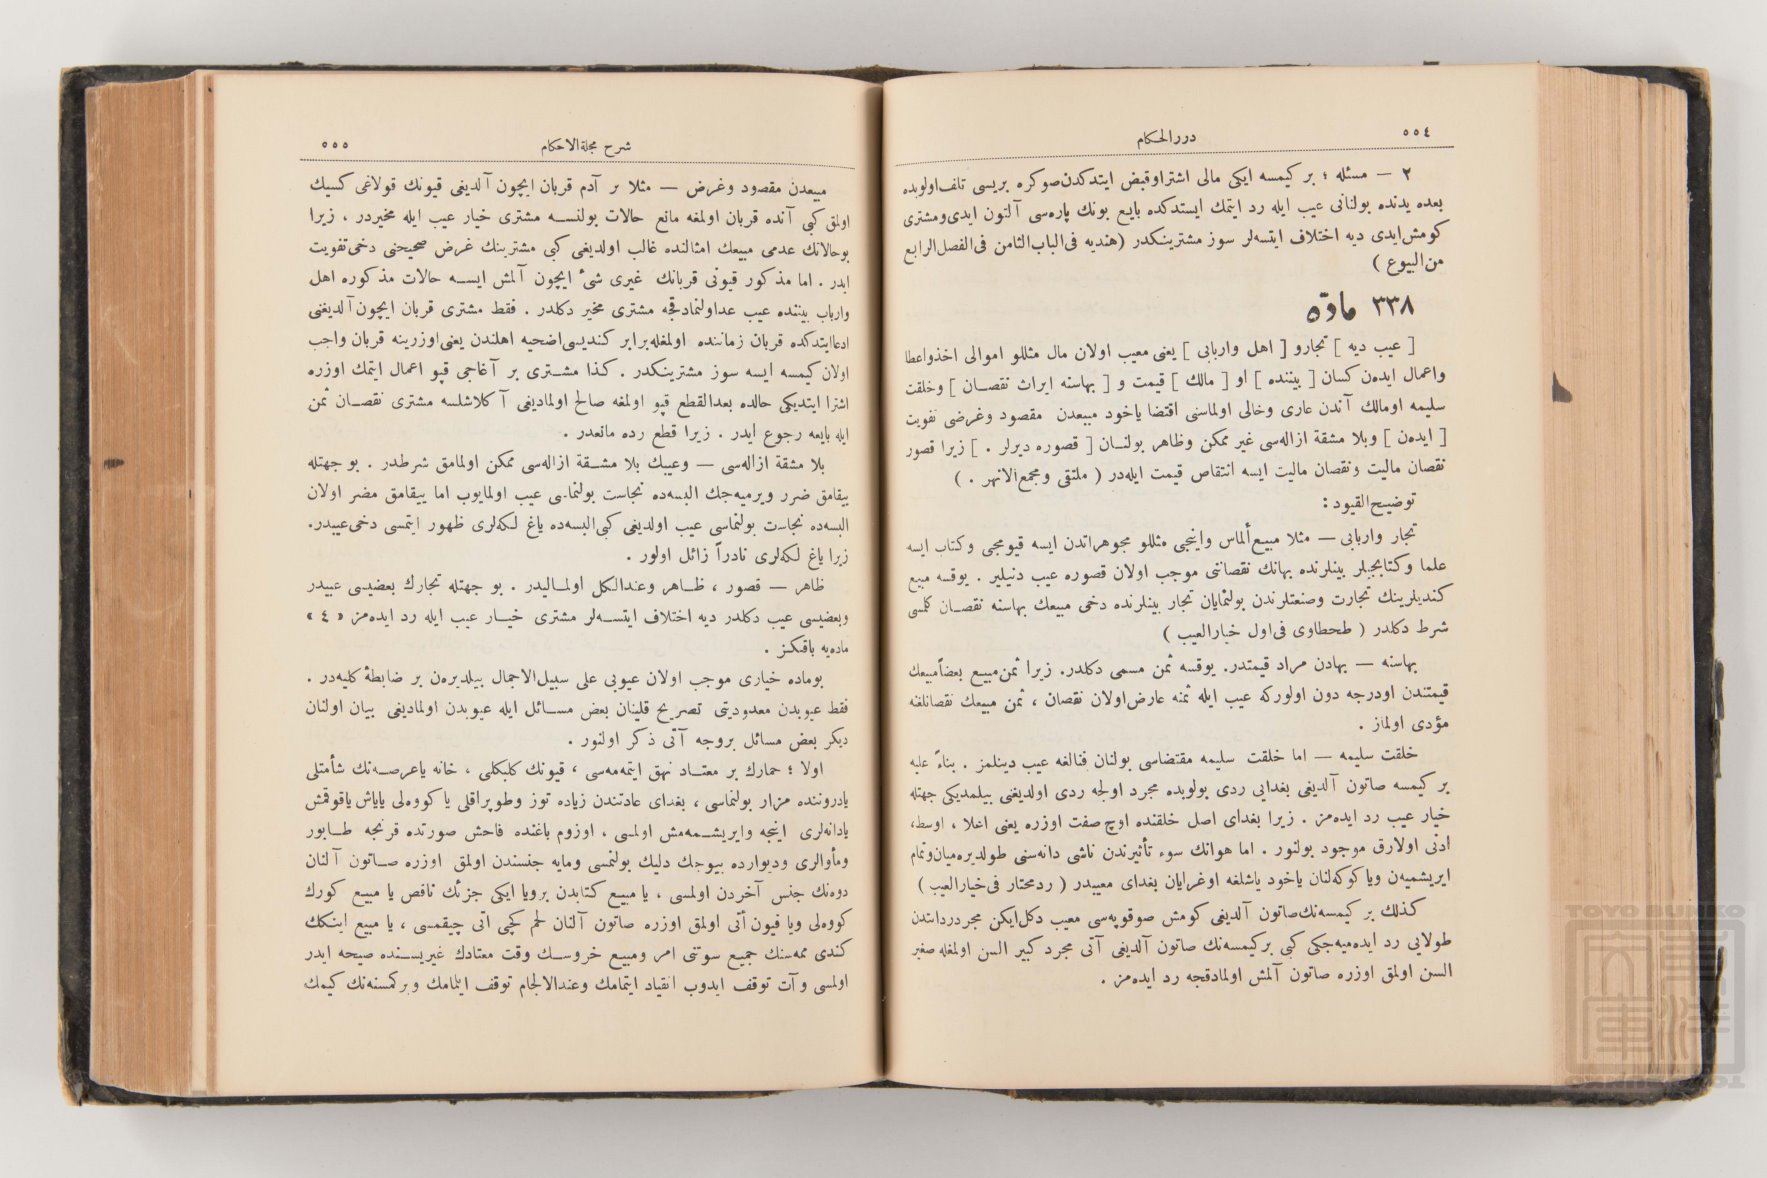 ٥٥٤
دررالحكام
٢ — مسئله ؛ بر كيمسه ايكى مالى اشتراوقبض ايتدكدن‌صوكره بريسى تلف‌اولوبده
بعده يدنده بولنانى عيب ايله رد ايتمك ايستدكده بايع بونك پاره‌سى آلتون ايدى‌ومشترى
كومش‌ايدى ديه اختلاف ايتسه‌لر سوز مشترينكدر (هنديه فى‌الباب‌الثامن فى‌الفصل‌الرابع
من‌البيوع )
٣٣٨ مادّه
[ عيب ديه ] تجارو [ اهل واربابى ] يعنى معيب اولان مال مثللو اموالى اخذواعطا
واعمال ايده‌ن كسان [ بيننده ] او [ مالك ] قيمت و [ بهاسنه ايراث نقصـان ] وخلقت
سليمه اومالك آندن عارى وخالى اولماسنى اقتضا ياخود مبيعدن مقصود وغرضى تفويت
[ ايده‌ن ] وبلا مشقة ازاله‌سى غير ممكن وظاهر بولنـان [ قصوره ديرلر . ] زيرا قصور
نقصان ماليت ونقصان ماليت ايسه انتقاص قيمت ايله‌در ( ملتقى ومجمع‌الانهر . )
توضيح‌القيود :
تجار واربابى — مثلا مبيع‌ألماس واينجى مثللو مجوهراتدن ايسه قيومجى وكتاب ايسه
علما وكتابجيلر بينلرنده بهانك نقصاننى موجب اولان قصوره عيب دنيلير . يوقسه مبيع
كنديلرينك تجارت وصنعتلرندن بولنمايان تجار بينلرنده دخى مبيعك بهاسنه نقصـان كلسى
شرط دكلدر ( طحطاوى فى‌اول خيارالعيب )
بهاسنه — بهادن مراد قيمتدر. يوقسه ثمن مسمى دكلدر. زيرا ثمن‌مبيع بعضاً‌مبيعك
قيمتندن اودرجه دون اولوركه عيب ايله ثمنه عارض‌اولان نقصان ، ثمن مبيعك نقصانلغنه
مؤدى اولماز .
خلقت سليمه — اما خلقت سليمه مقتضاسى بولنان فنالغه عيب دينلمز . بناءً عليه
بر كيمسه صاتون آلديغى بغدايى ردى بولوبده مجرد اولجه ردى اولديغنى بيلمديكى جهتله
خيار عيب رد ايده‌مز . زيرا بغداى اصل خلقنده اوچ صفت اوزره يعنى اعلا ، اوسط،
ادنى اولارق موجود بولنور . اما هوانك سوء تأثيرندن ناشى دانه‌سنى طولديره‌ميان‌وتمام
ايريشميه‌ن ويا كوكه‌لنان ياخود ياشلغه اوغرايان بغداى معيبدر ( ردمختار فى‌خيارالعيب )
كذلك بر كيمسه‌نك‌صاتون آلديغى كومش صوقوپه‌سى معيب دكل‌ايكن مجردردائتدن
طولايى رد ايده‌ميه‌جكى كبى بركيمسه‌نك صاتون آلديغى آتى مجرد كبير السن اولمغله صغير
السن اولمق اوزره صاتون آلمش اولمادقجه رد ايده‌مز .
شرح مجلةالاحكام
٥٥٥
مبيعدن مقصود وغرض — مثلا بر آدم قربان ايچون آلديغى قيونك قولاغى كسيك
اولمق كبى آنده قربان اولمغه مانع حالات بولنسـه مشترى خيار عيب ايله مخيردر ، زيرا
بوحالاتك عدمى مبيعك امثالنده غالب اولديغى كبى مشترينك غرض صحيحنى دخى‌تفويت
ايدر . اما مذكور قيونى قربانك غيرى شىٔ ايچون آلمش ايسـه حالات مذكوره اهل
وارباب بيننده عيب عداولنمادقجه مشترى مخير دكلدر . فقط مشترى قربان ايچون‌آلديغنى
ادعاايتدكده قربان زماننده اولمغله‌برابر كنديسى‌اضحيه اهلندن يعنى‌اوزرينه قربان واجب
اولان كيمسه ايسه سوز مشترينكدر . كذا مشـترى بر آغاجى قپو اعمال ايتمك اوزره
اشترا ايتديكى حالده بعدالقطع قپو اولمغه صالح اولماديغى آكلاشلسه مشترى نقصـان ثمن
ايله بايعه رجوع ايدر . زيرا قطع رده مانعدر .
بلا مشقة ازاله‌سى — وعيبك بلا مشـقة ازاله‌سى ممكن اولمامق شرطدر . بو جهتله
ييقامق ضرر ويرميه‌جك البسه‌ده نجاست بولنماسى عيب اولمايوب اما ييقامق مضر اولان
البسه‌ده نجاست بولنماسى عيب اولديغى كبى‌البسه‌ده ياغ لكه‌لرى ظهور ايتمسى دخى‌عيبدر.
زيرا ياغ لكه‌لرى نادراً زائل اولور .
ظاهر — قصور ، ظـاهر وعندالكل اولمـاليدر . بو جهتله تجارك بعضيسى عيبدر
وبعضيسى عيب دكلدر ديه اختلاف ايتسـه‌لر مشترى خيـار عيب ايله رد ايده‌مز « ٤ »
ماده‌يه باقنكـز .
بوماده خيارى موجب اولان عيوبى على سبيل‌الاجمال بيلديره‌ن بر ضابطهٔ كليه‌در .
فقط عيوبدن معدوديتى تصريح قلينان بعض مسـائل ايله عيوبدن اولماديغى بيان اولنان
ديكر بعض مسائل بروجه آتى ذكر اولنور .
اولا ؛ حمارك بر معتـاد نهق ايتمه‌مه‌سى ، قيونك كلبكلى ، خانه ياعرصه‌نك شأمتلى
يادروننده مزار بولنماسى ، بغداى عادتندن زياده توز وطوپراقلى يا كووه‌لى ياياش ياقوقمش
يادانه‌لرى اينجه وايريشـمه‌مش اولمسى ، اوزوم باغنده فاحش صورتده قرنجه طـابور
ومأوالرى وديوارده بيوجك دليك بولنمسى ومايه جنسندن اولمق اوزره صـاتون آلنان
دوه‌نك جنس آخردن اولمسى ، يا مبيع كتابدن برويا ايكى جزئك ناقص يا مبيع كورك
كووه‌لى ويا قيون أتى اولمق اوزره صاتون آلنان لحم كچى اتى چيقمسى ، يا مبيع اينككك
كندى ممه‌سنك جميع سوتنى امر ومبيع خروسـك وقت معتادك غيريسـنده صيحه ايدر
اولمسى وآت توقف ايدوب انقياد ايتمامك وعندالالجام توقف ايلمامك وبركمسنه‌نك كيمك